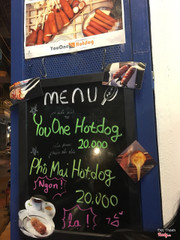 YouOne Hotdog
MENU
YouOne Hotdog
20.000
Phô Mai Hotdog
Ngon!
20.000
{Lạ!}